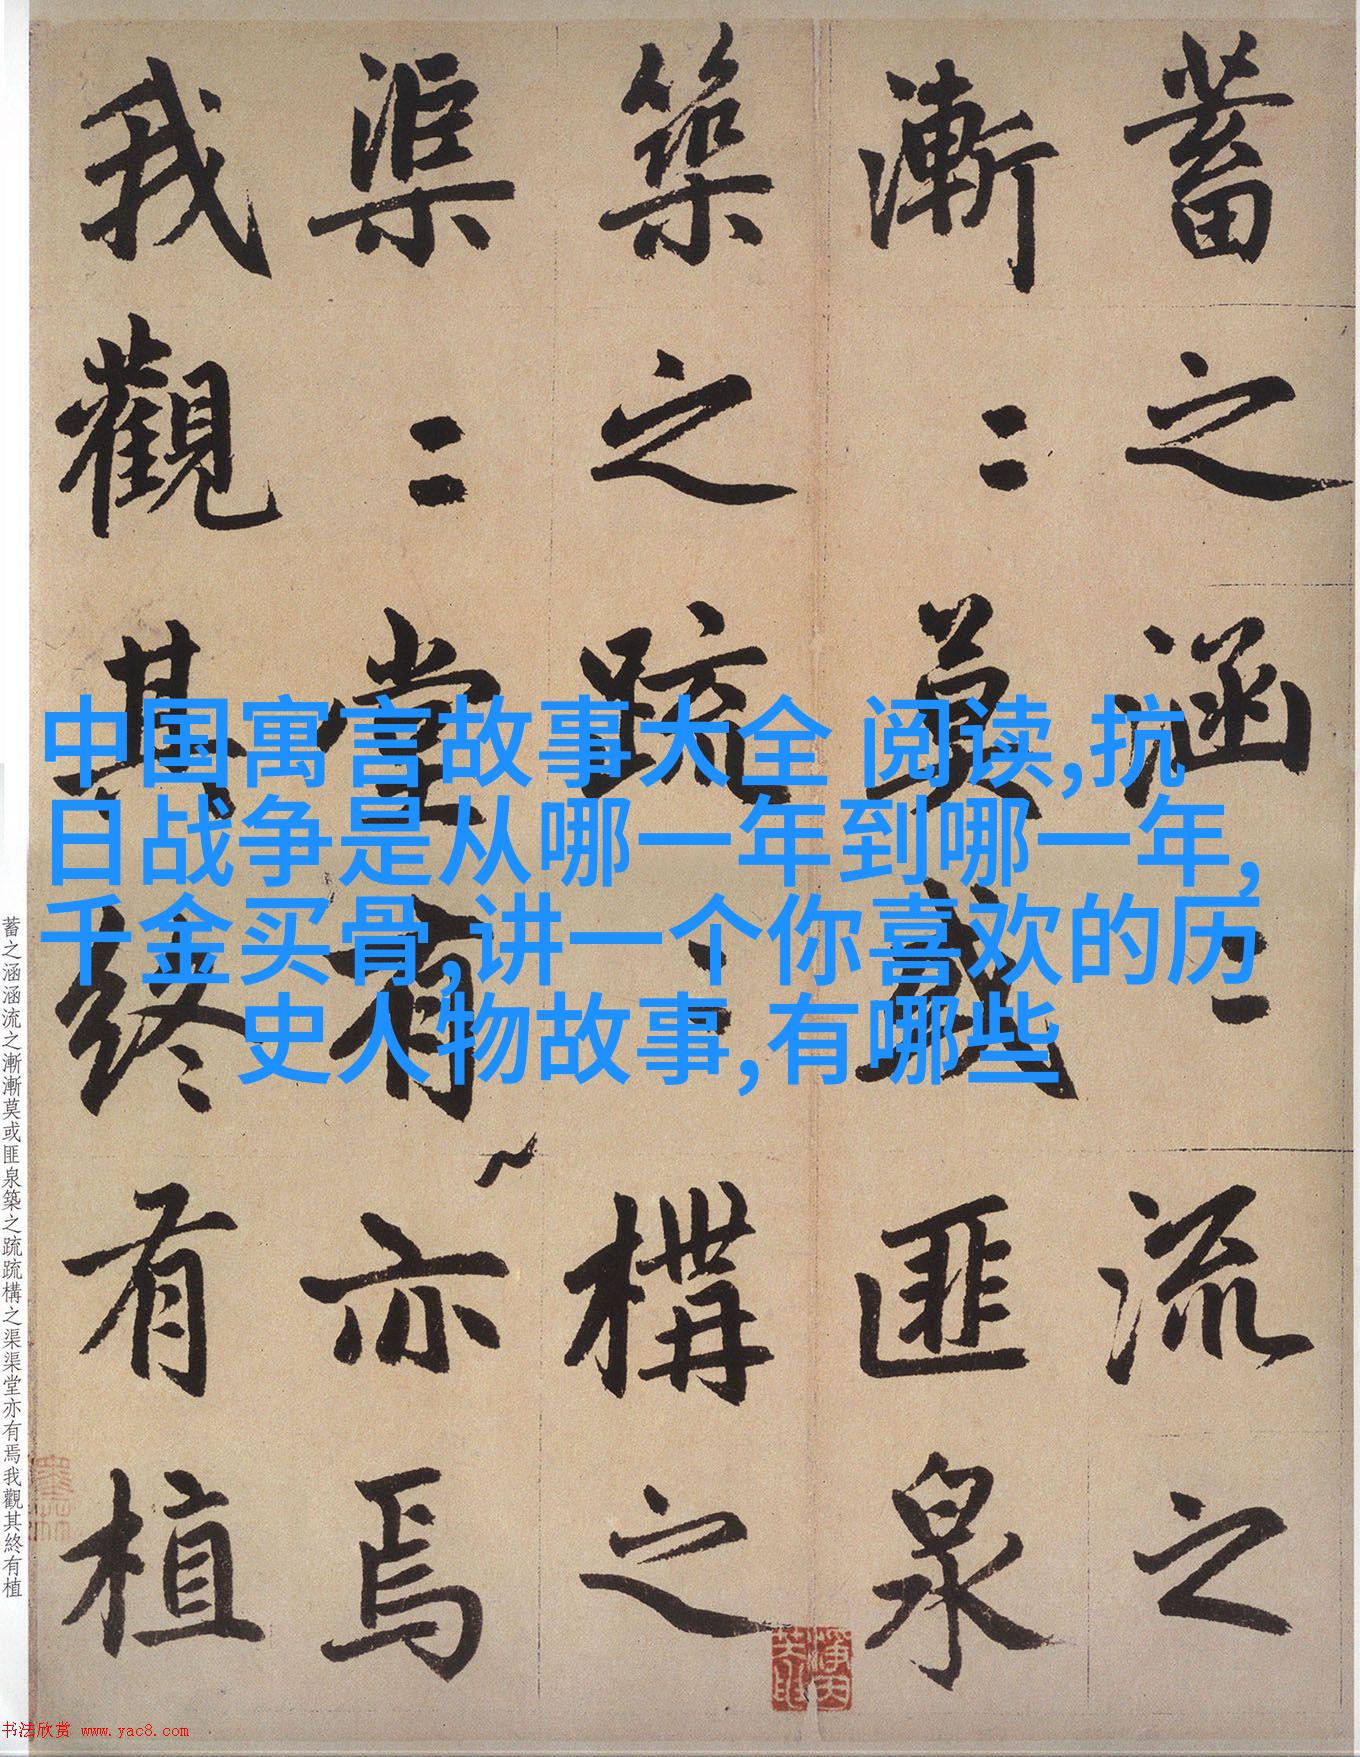 蓄之涵〻流之
漸〻莫或匪泉
築之疏〻構之
渠〻堂有亦焉
我觀其終有植
中国寓言故事大全 阅读,抗
日战争是从哪一年到哪一年,
千金买骨,讲一个你喜欢的历
史人物故事,有哪些
蓄之涵涵流之漸漸莫或匪泉築之疏疏構之渠渠堂亦有焉我觀其終有植
书法欣赏 www.yac8.com